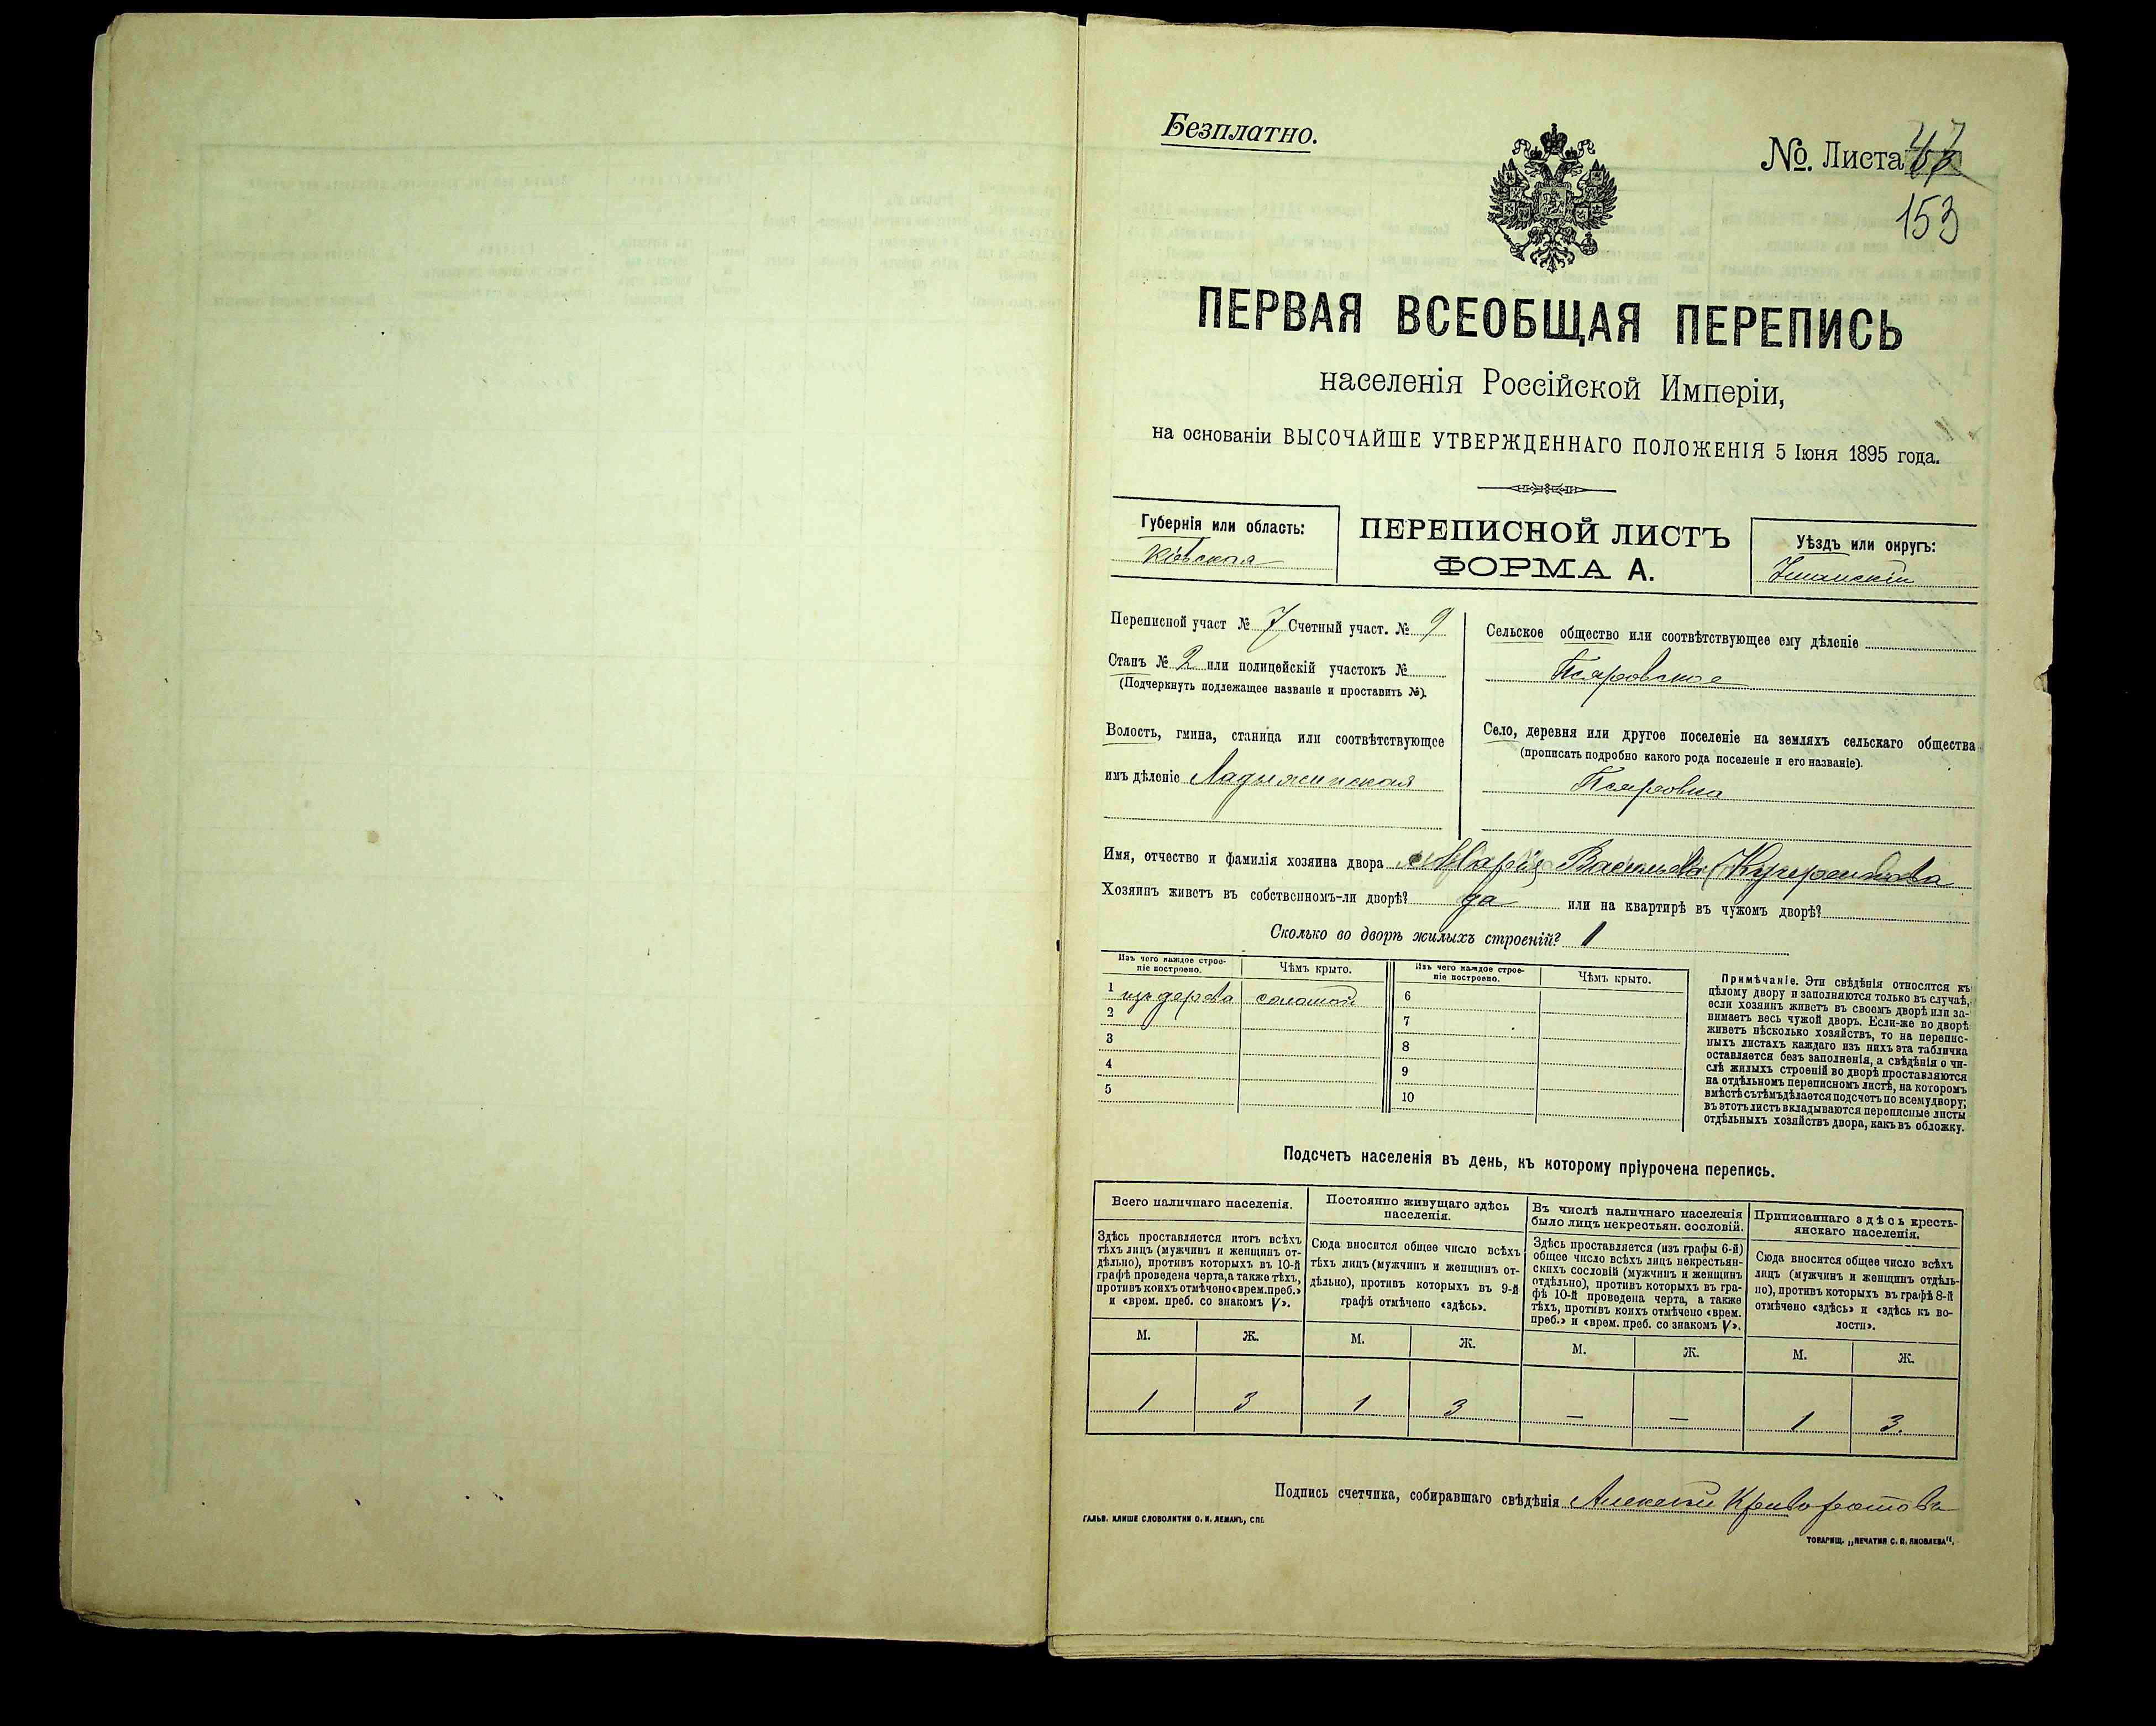 Безплатно.
№. Листа
153
ПЕРВАЯ ВСЕОБЩАЯ ПЕРЕПИСЬ
населенія Россійской Имперіи,
на основаніи ВЫСОЧАЙШЕ УТВЕРЖДЕННАГО ПОЛОЖЕНІЯ 5 Іюня 1895 года.
Губернія или область:
Кіевская
ПЕРЕПИСНОЙ ЛИСТЪ
ФОРМА А.
Уѣздъ или округъ:
Уманскій
Переписной участ № 7 Счетный участ. № 9
Станъ № 2 или полицейскій участокъ №
(Подчеркнуть подлежащее названіе и проставить №).
Волость, гмина, станица или соотвѣтствующее
имъ дѣленіе Ладыжинская
Сельское общество или соотвѣтствующее ему дѣленіе
Псяровское
Село, деревня или другое поселеніе на земляхъ сельскаго общества
(прописать подробно какого рода поселеніе и его названіе).
Псяровка
Имя, отчество и фамилія хозяина двора Марія Васильева
Хозяинъ живетъ въ собственномъ-ли дворѣ? да или на квартирѣ въ чужомъ дворѣ?
Сколько во дворѣ жилыхъ строеній? 1
Изъ чего каждое строе-
ніе построено.
Чѣмъ крыто.
Изъ чего каждое строе-
ніе построено.
Чѣмъ крыто.
1 изъ дерева соломой
2
3
4
5
6
7
8
9
10
Примѣчаніе. Эти свѣдѣнія относятся къ
цѣлому двору и заполняются только въ случаѣ,
если хозяинъ живетъ въ своемъ дворѣ или за-
нимаетъ весь чужой дворъ. Если-же во дворѣ
живетъ нѣсколько хозяйствъ, то на перепис-
ныхъ листахъ каждаго изъ нихъ эта табличка
оставляется безъ заполненія, а свѣдѣнія о чи-
слѣ жилыхъ строеній во дворѣ проставляются
на отдѣльномъ переписномъ листѣ, на которомъ
вмѣстѣ съ тѣмъ дѣлается подсчетъ по всему двору;
въ этотъ листъ вкладываются переписные листы
отдѣльныхъ хозяйствъ двора, какъ въ обложку.
Подсчетъ населенія въ день, къ которому пріурочена перепись.
Всего наличнаго населенія.
Здѣсь проставляется итогъ всѣхъ
тѣхъ лицъ (мужчинъ и женщинъ от-
дѣльно), противъ которыхъ въ 10-й
графѣ проведена черта, а также тѣхъ,
противъ коихъ отмѣчено «врем. преб.»
и «врем. преб. со знакомъ V».
Постоянно живущаго здѣсь
населенія.
Сюда вносится общее число всѣхъ
тѣхъ лицъ (мужчинъ и женщинъ от-
дѣльно), противъ которыхъ въ 9-й
графѣ отмѣчено «здѣсь».
Въ числѣ наличнаго населенія
было лицъ некрестьян. сословій.
Здѣсь проставляется (изъ графы 6-й)
общее число всѣхъ лицъ некрестьян-
скихъ сословій (мужчинъ и женщинъ
отдѣльно), противъ которыхъ въ гра-
фѣ 10-й проведена черта, а также
тѣхъ, противъ коихъ отмѣчено «врем.
преб.» и «врем. преб. со знакомъ V».
Приписаннаго здѣсь кресть-
янскаго населенія.
Сюда вносится общее число всѣхъ
лицъ (мужчинъ и женщинъ отдѣль-
но), противъ которыхъ въ графѣ 8-й
отмѣчено «здѣсь» и «здѣсь къ во-
лости».
М. Ж. М. Ж. М. Ж. М. Ж.
1 3 1 3 — — 1 3.
Подпись счетчика, собиравшаго свѣдѣнія Алексѣй
ГАЛЬВ. КЛИШЕ СЛОВОЛИТНИ О. И. ЛЕМАНЪ, СПБ.
ТОВАРИЩ. „ПЕЧАТНЯ С. П. ЯКОВЛЕВА".